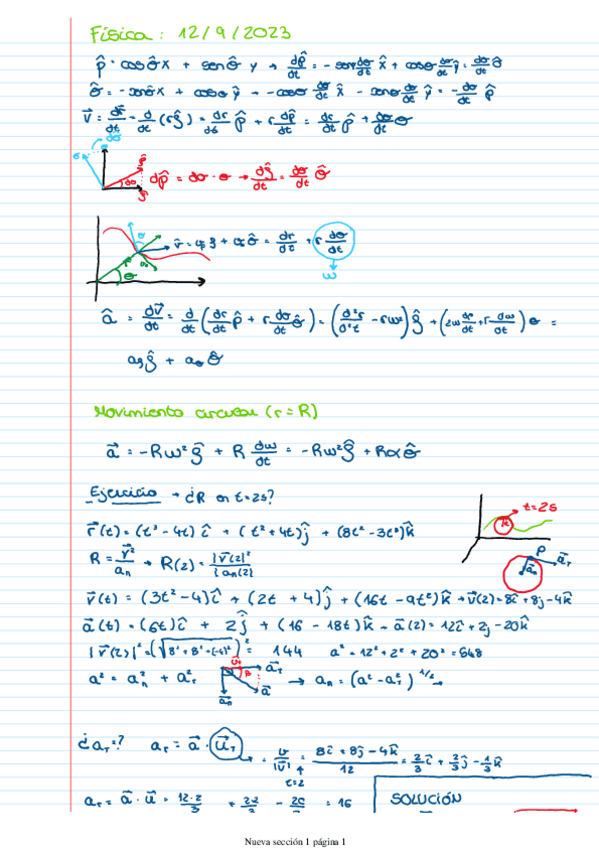 Física: 12/9/2023
ρ̂ = cosθ x̂ + senθ ŷ → dρ̂/dt = -senθ dθ/dt x̂ + cosθ dθ/dt ŷ = dθ/dt θ̂
θ̂ = -senθ x̂ + cosθ ŷ → -cosθ dθ/dt x̂ - senθ dθ/dt ŷ = -dθ/dt ρ̂
v⃗ = dr⃗/dt = d/dt (rρ̂) = dr/dt ρ̂ + r dρ̂/dt = dr/dt ρ̂ + dθ/dt θ
dρ̂ = dθ · θ → dρ̂/dt = dθ/dt θ̂
= dr/dt + r dθ/dt
ω
â = dv⃗/dt = d/dt (dr/dt ρ̂ + r dθ/dt θ̂) = (d²r/d²t - rω²) ρ̂ + (2ω dr/dt + r dω/dt) θ =
aρ ρ̂ + aθ θ̂
Movimiento circular (r = R)
a⃗ = -Rω² ρ̂ + R dω/dt = -Rω² ρ̂ + Rα θ̂
Ejercicio → ¿R en t=2s?
r⃗(t) = (t³ - 4t) î + (t² + 4t) ĵ + (8t² - 3t³) k̂
t=2s
R = v⃗²/aₙ → R(2) = |v⃗(2)|²/|aₙ(2)|
P
a⃗T
v⃗(t) = (3t² - 4) î + (2t + 4) ĵ + (16t - 9t²) k̂ → v⃗(2) = 8î + 8ĵ - 4k̂
a⃗(t) = (6t) î + 2ĵ + (16 - 18t) k̂ → a⃗(2) = 12î + 2ĵ - 20k̂
|v⃗(2)|² = (√8² + 8² + (-4)²)² = 144 a² = 12² + 2² + 20² = 548
a² = aₙ² + aT² a⃗T a⃗ a⃗ₙ → aₙ = (a² - aT²)^1/2
¿aT=? aT = a⃗ · u⃗T
→ = v/|v⃗| = 8î + 8ĵ - 4k̂/12 = 2/3 î + 2/3 ĵ - 1/3 k̂
t=2
aT = a⃗ · u⃗ = 12·2/3 = 16
SOLUCIÓN
Nueva sección 1 página 1